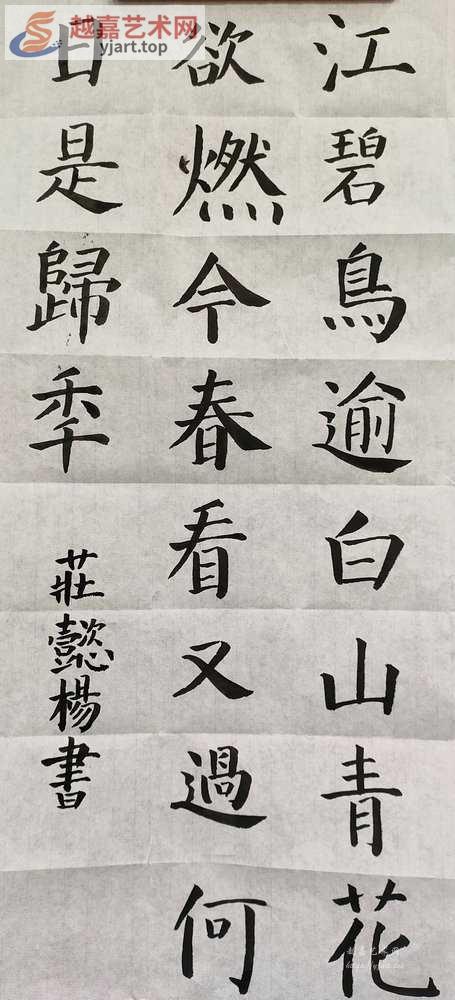 江碧鳥逾白山青花
欲燃今春看又過何
日是歸秊
莊懿楊書
越嘉艺术网
yjart.top